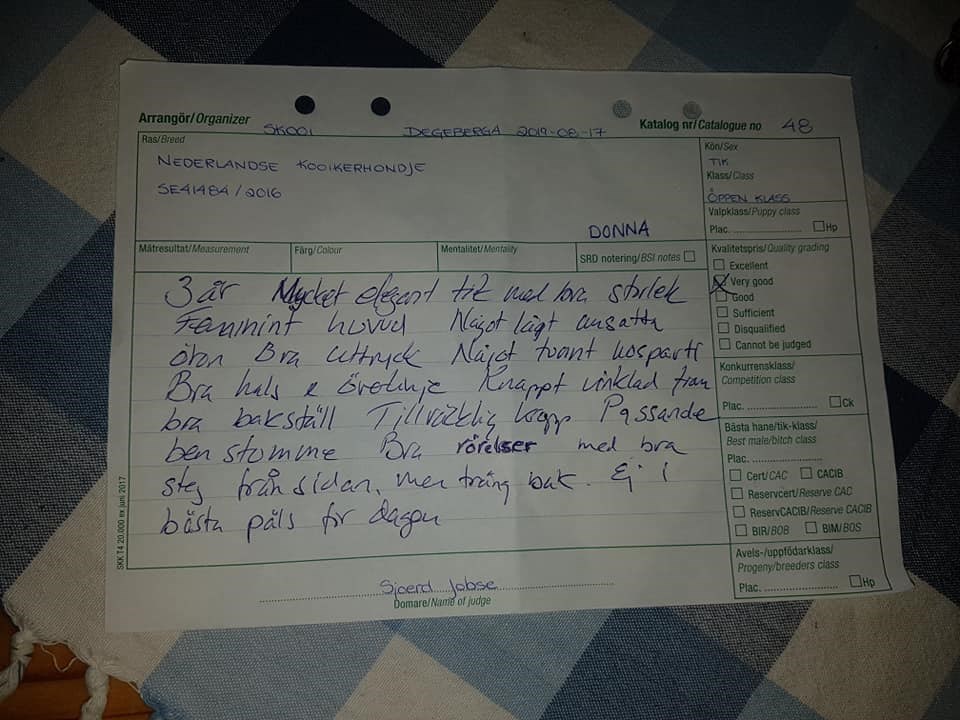 Arrangör/Organizer SKOOI DEGEBERGA 2019-08-17 Katalog nr/Catalogue no 48
Ras/Breed
NEDERLANDSE KOOIKERHONDJE
SE41484/2016
DONNA
Kön/Sex
TIK
Klass/Class
ÖPPEN KLASS
Valpklass/Puppy class
Plac. Hp
Mätresultat/Measurement Färg/Colour Mentalitet/Mentality SRD notering/BSI notes
Kvalitetspris/Quality grading
Excellent
Very good
Good
Sufficient
Disqualified
Cannot be judged
3 år Mycket elegant tik med bra storlek
Feminint huvud Något lågt ansatta
öron Bra uttryck Något tvärt nosparti
Bra hals & överlinje Knappt vinklad fram
bra bakställ Tillräcklig kropp Passande
benstomme Bra rörelser med bra
steg från sidan, men trång bak. Ej i
bästa päls för dagen
Konkurrensklass/
Competition class
Plac. Ck
Bästa hane/tik-klass/
Best male/bitch class
Plac.
Cert/CAC CACIB
Reservcert/Reserve CAC
ReservCACIB/Reserve CACIB
BIR/BOB BIM/BOS
Avels-/uppfödarklass/
Progeny/breeders class
Plac. Hp
Sjoerd Jobse
Domare/Name of judge
SKK T4 20.000 ex juni 2017